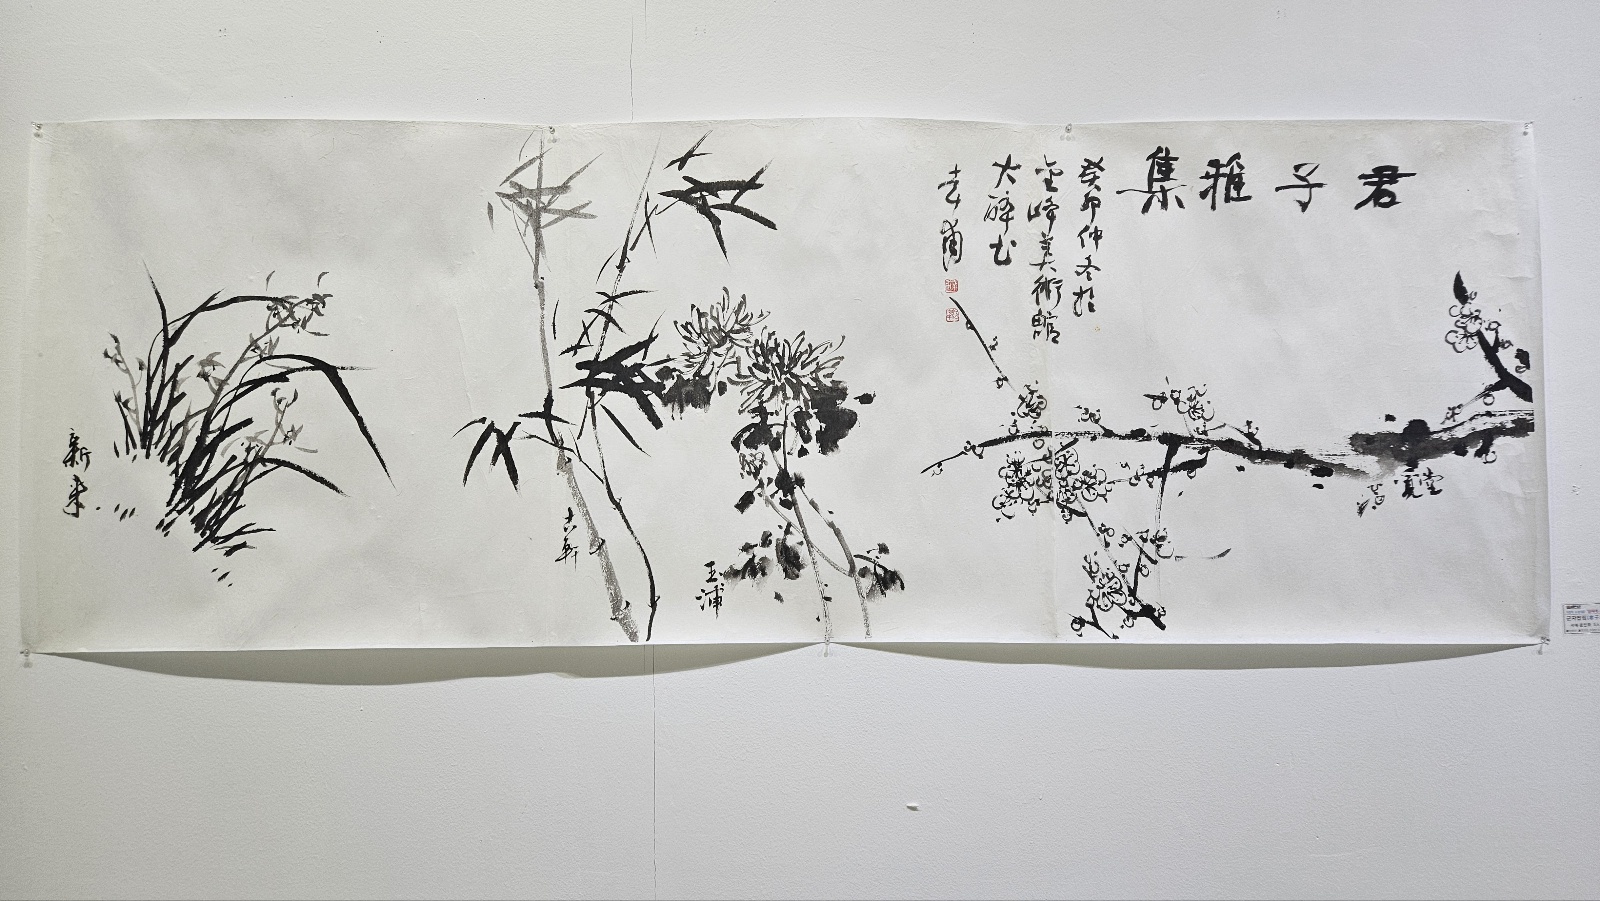 君子雅集
癸卯仲冬於
金峰美術館
大醉書
寬堂
玉浦
古軒
新來